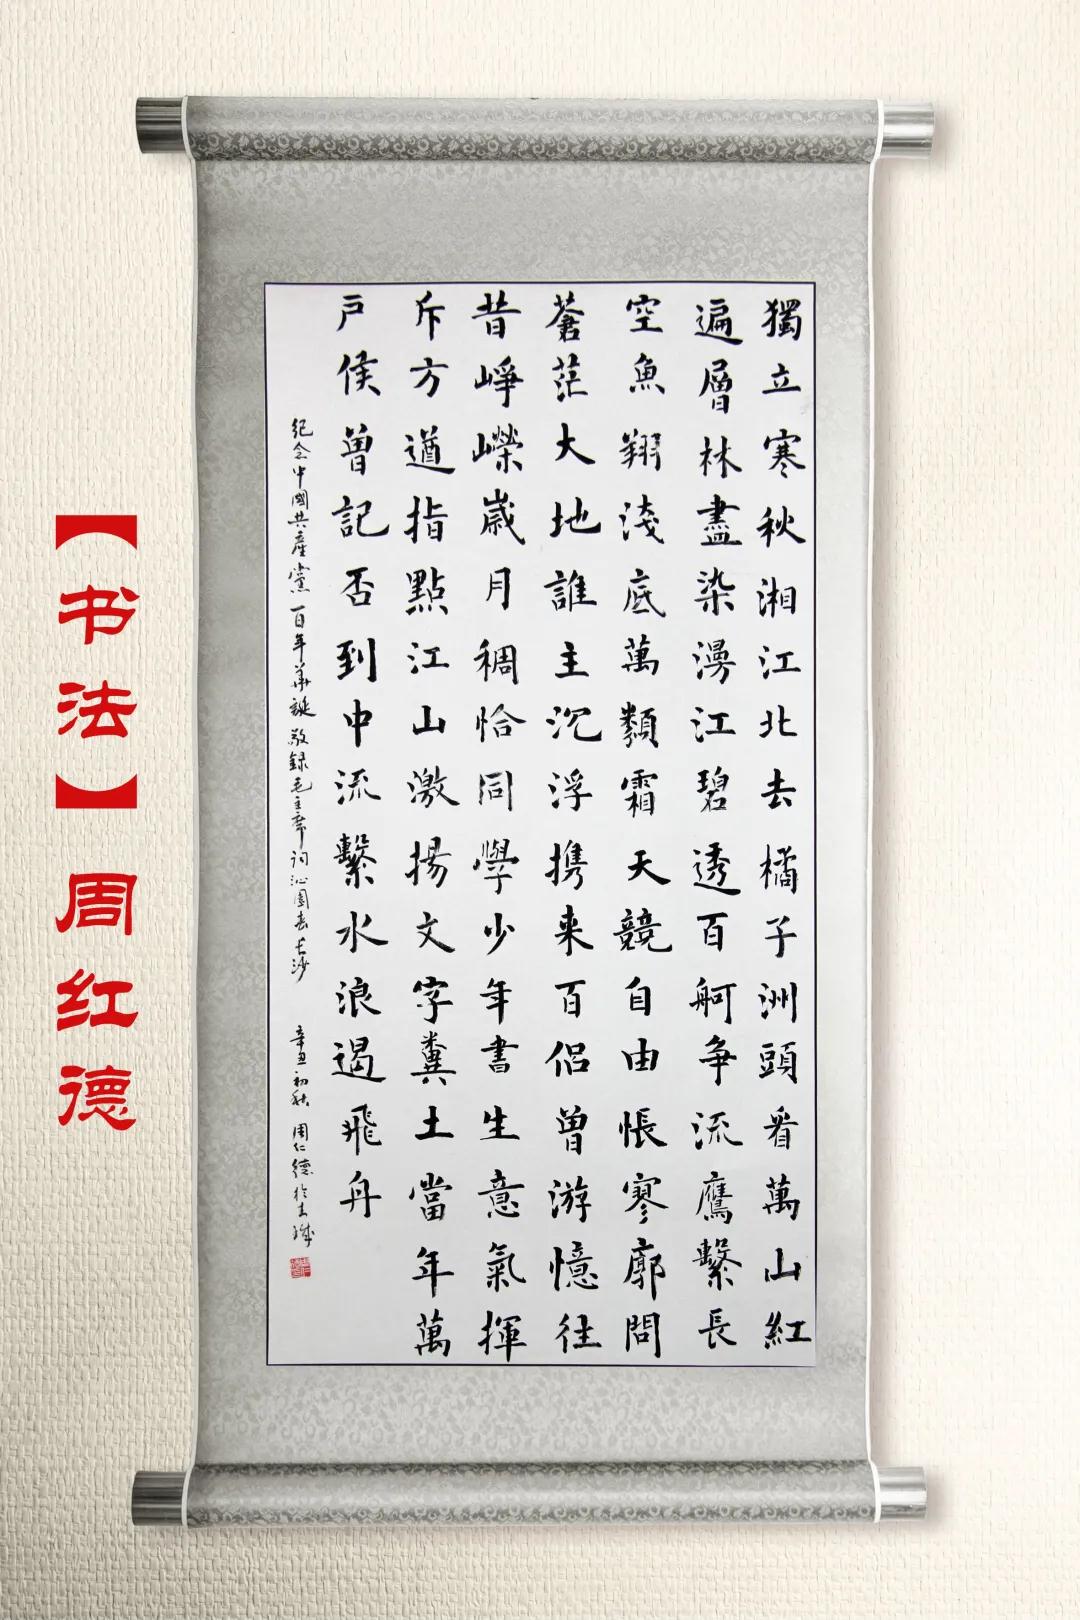 獨立寒秋湘江北去橘子洲頭看萬山紅
遍層林盡染漫江碧透百舸争流鷹繫長
空魚翔淺底萬類霜天競自由悵寥廓問
蒼茫大地誰主沉浮携来百侣曾游憶往
昔崢嶸歲月稠恰同學少年書生意氣揮
斥方遒指點江山激揚文字糞土當年萬
户侯曾記否到中流繫水浪遏飛舟
紀念中國共產黨百年華誕敬録毛主席詞沁園春長沙 辛丑初秋 周仁德於
【书法】周红德